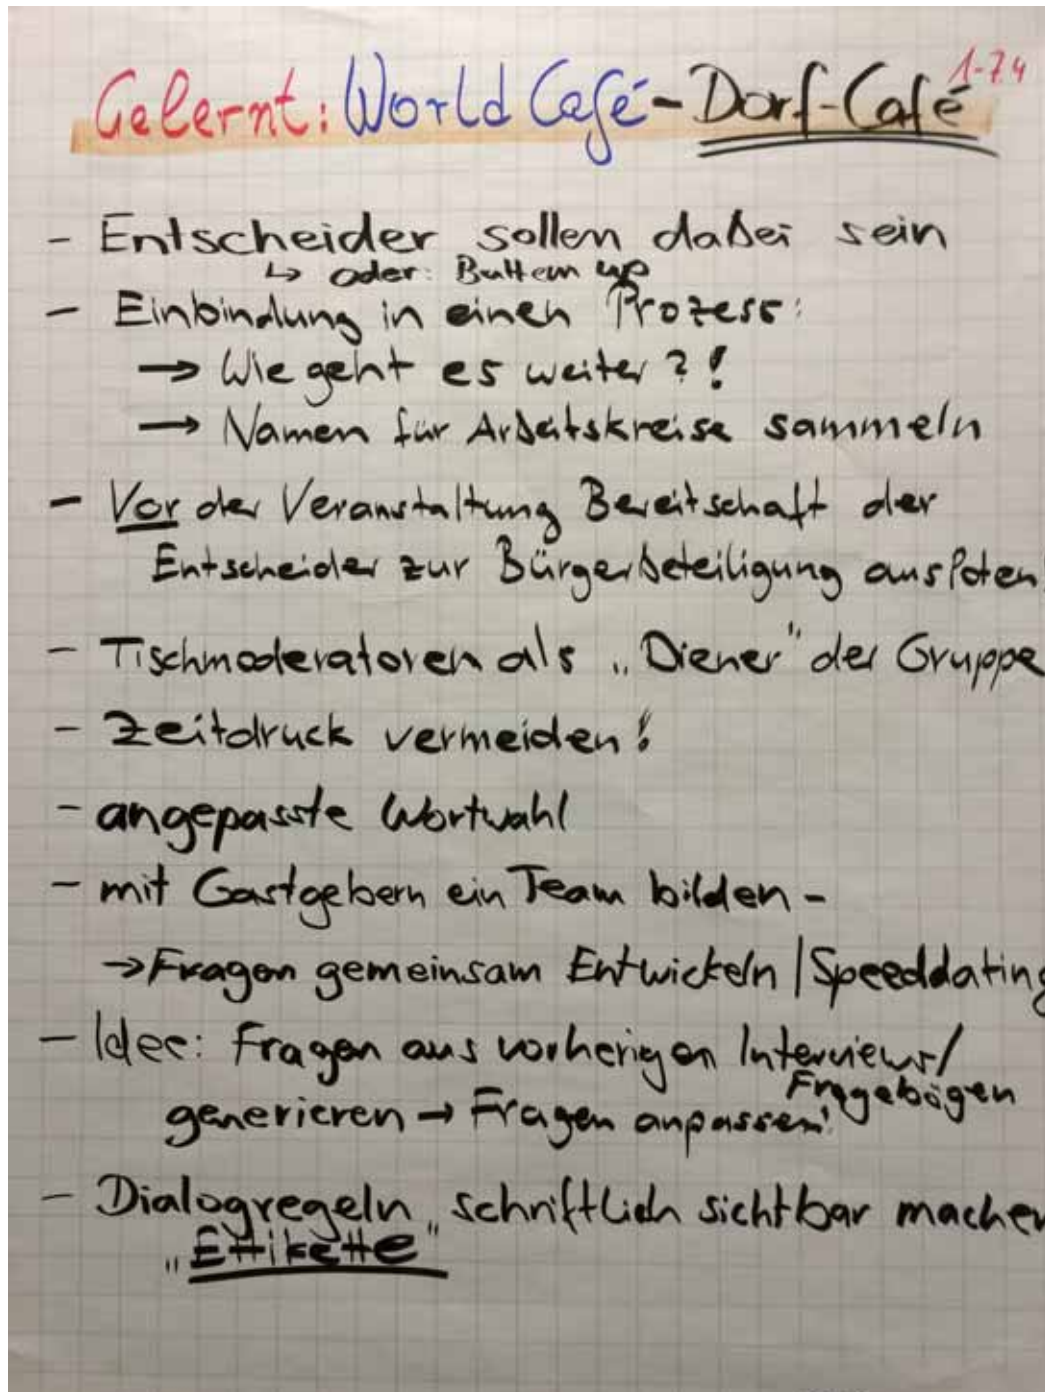 Gelernt: World Café - Dorf-Café 1-7.4
- Entscheider sollen dabei sein
↳ oder: Buttem up
- Einbindung in einen Prozess:
→ Wie geht es weiter?!
→ Namen für Arbeitskreise sammeln
- Vor der Veranstaltung Bereitschaft der
Entscheider zur Bürgerbeteiligung ausloten!
- Tischmoderatoren als „Diener" der Gruppe
- Zeitdruck vermeiden!
- angepasste Wortwahl
- mit Gastgebern ein Team bilden -
→ Fragen gemeinsam Entwickeln / Speeddating
- Idee: Fragen aus vorherigen Interviews/
Fragebögen
generieren → Fragen anpassen!
- Dialogregeln „schriftlich sichtbar machen
„Ettikette"